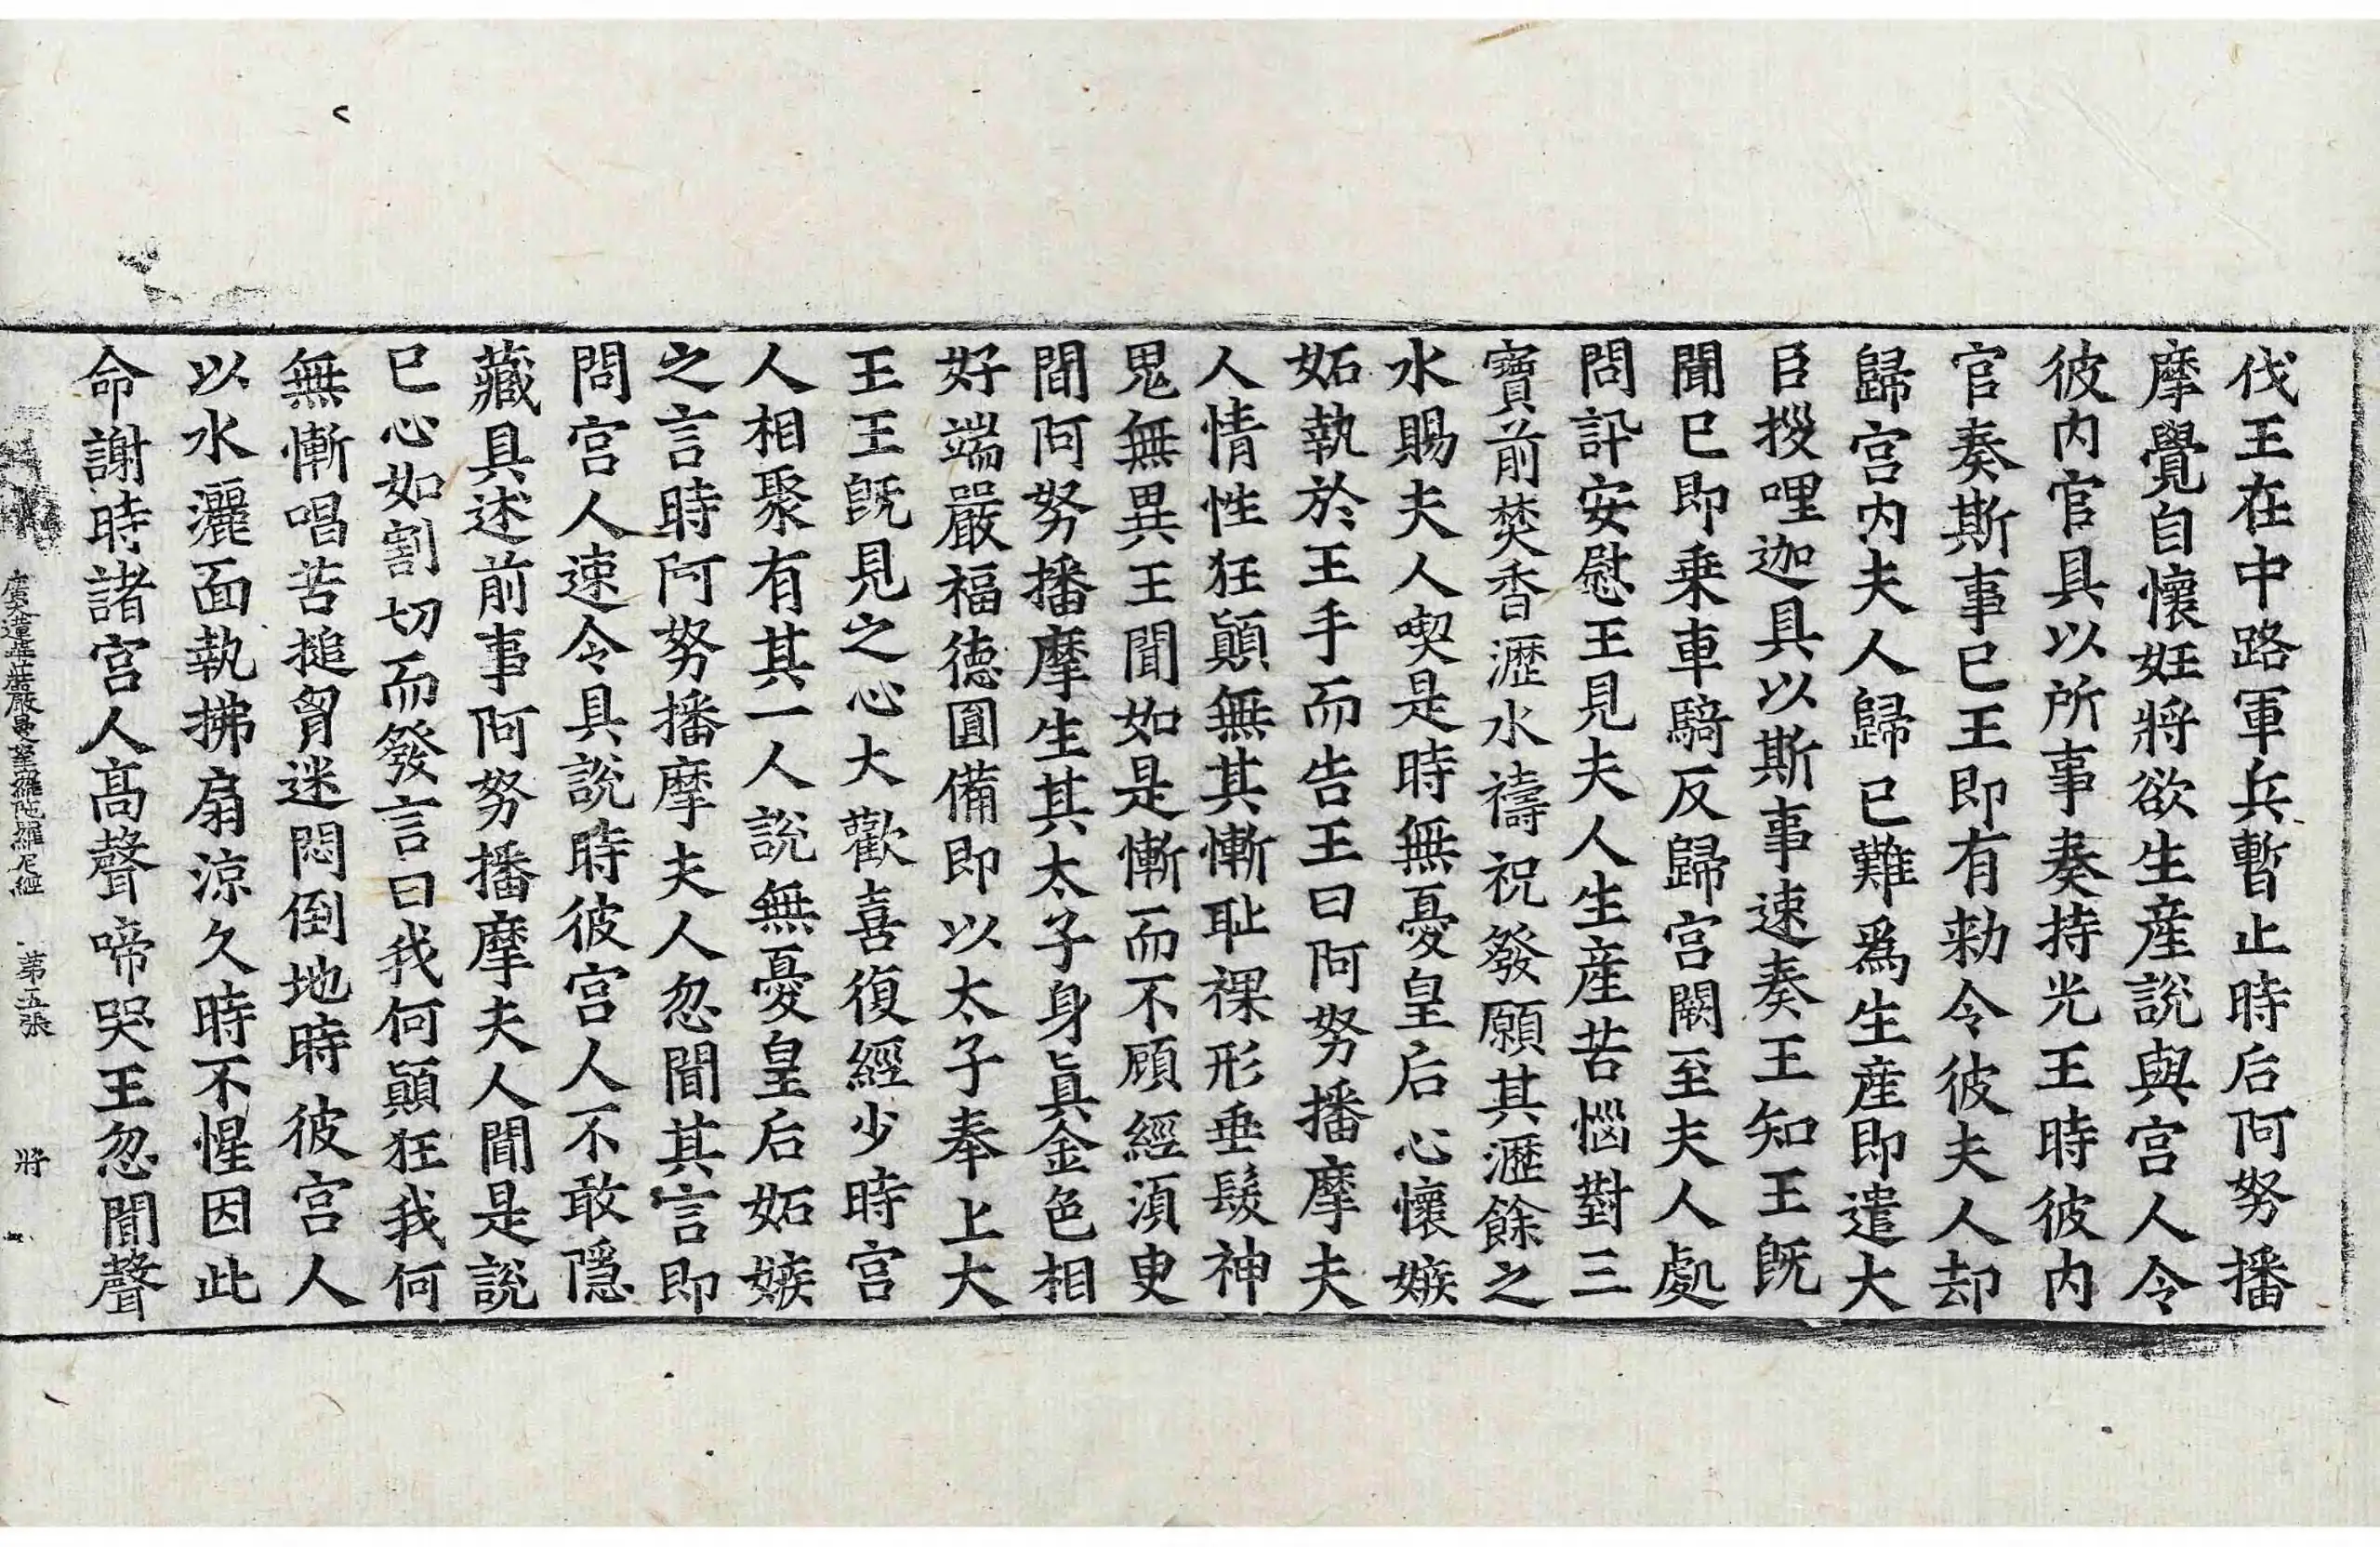 伐王在中路軍兵暫止時后阿努播
摩覺自懷妊將欲生産說與宮人令
彼内官具以所事奏持光王時彼内
官奏斯事已王即有勑令彼夫人却
歸宮内夫人歸已難爲生産即遣大
臣授哩迦具以斯事速奏王知王旣
聞已即乗車騎反歸宮闕至夫人處
問訃安慰王見夫人生産苦惱對三
寶前焚香瀝水禱祝發願其瀝餘之
水賜夫人喫是時無憂皇后心懷嫉
妬執於王手而告王曰阿努播摩夫
人情性狂顚無其慚耻裸形垂髮神
鬼無異王聞如是慚而不顧經湏臾
間阿努播摩生其太子身眞金色相
好端嚴福德圓備即以太子奉上大
王王旣見之心大歡喜復經少時宮
人相聚有其一人說無憂皇后妬嫉
之言時阿努播摩夫人忽聞其言即
問宮人速令具說時彼宮人不敢隱
藏具述前事阿努播摩夫人聞是說
已心如割切而發言曰我何顚狂我何
無慚唱苦搥胷迷悶倒地時彼宮人
以水灑面執拂扇凉久時不惺因此
命謝時諸宮人高聲啼哭王忽聞聲
廣大蓮華莊嚴曼拏羅陁羅尼經 第五張 將